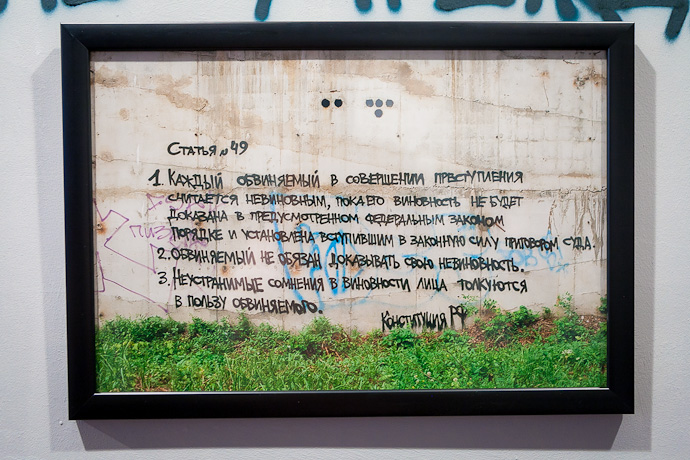 Статья №49
1. Каждый обвиняемый в совершении преступления
считается невиновным, пока его виновность не будет
доказана в предусмотренном федеральным законом
порядке и установлена вступившим в законную силу приговором суда.
2. Обвиняемый не обязан доказывать свою невиновность.
3. Неустранимые сомнения в виновности лица толкуются
в пользу обвиняемого.
Конституция РФ